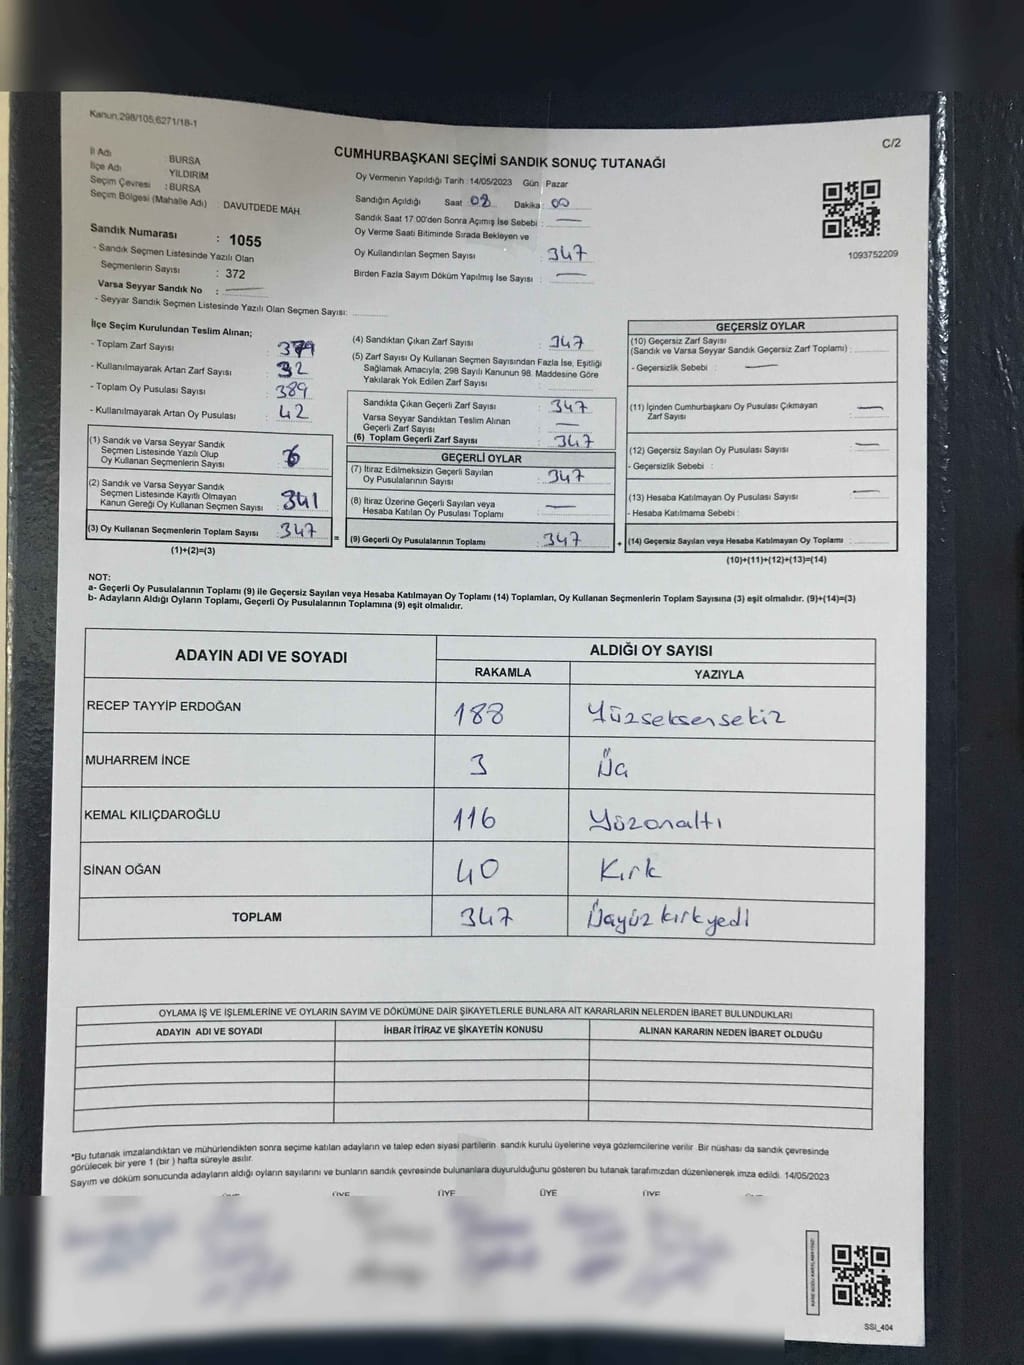 Kanun,298/105,6271/18-1
C/2
CUMHURBAŞKANI SEÇİMİ SANDIK SONUÇ TUTANAĞI
İl Adı : BURSA
İlçe Adı : YILDIRIM
Seçim Çevresi : BURSA
Seçim Bölgesi (Mahalle Adı) : DAVUTDEDE MAH.
Sandık Numarası : 1055
- Sandık Seçmen Listesinde Yazılı Olan
Seçmenlerin Sayısı : 372
Varsa Seyyar Sandık No :
- Seyyar Sandık Seçmen Listesinde Yazılı Olan Seçmen Sayısı:
Oy Vermenin Yapıldığı Tarih : 14/05/2023 Gün : Pazar
Sandığın Açıldığı Saat 08 Dakika : 00
Sandık Saat 17:00'den Sonra Açımış İse Sebebi :
Oy Verme Saati Bitiminde Sırada Bekleyen ve
Oy Kullandırılan Seçmen Sayısı : 347
Birden Fazla Sayım Döküm Yapılmış İse Sayısı :
1093752209
İlçe Seçim Kurulundan Teslim Alınan;
- Toplam Zarf Sayısı : 379
- Kullanılmayarak Artan Zarf Sayısı : 32
- Toplam Oy Pusulası Sayısı : 389
- Kullanılmayarak Artan Oy Pusulası : 42
(1) Sandık ve Varsa Seyyar Sandık
Seçmen Listesinde Yazılı Olup
Oy Kullanan Seçmenlerin Sayısı : 6
(2) Sandık ve Varsa Seyyar Sandık
Seçmen Listesinde Kayıtlı Olmayan
Kanun Gereği Oy Kullanan Seçmen Sayısı : 341
(3) Oy Kullanan Seçmenlerin Toplam Sayısı : 347
(1)+(2)=(3)
(4) Sandıktan Çıkan Zarf Sayısı : 347
(5) Zarf Sayısı Oy Kullanan Seçmen Sayısından Fazla İse, Eşitliği
Sağlamak Amacıyla, 298 Sayılı Kanunun 98. Maddesine Göre
Yakılarak Yok Edilen Zarf Sayısı :
Sandıkta Çıkan Geçerli Zarf Sayısı : 347
Varsa Seyyar Sandıktan Teslim Alınan
Geçerli Zarf Sayısı :
(6) Toplam Geçerli Zarf Sayısı : 347
GEÇERLİ OYLAR
(7) İtiraz Edilmeksizin Geçerli Sayılan
Oy Pusulalarının Sayısı : 347
(8) İtiraz Üzerine Geçerli Sayılan veya
Hesaba Katılan Oy Pusulası Toplamı :
= (9) Geçerli Oy Pusulalarının Toplamı : 347 +
GEÇERSİZ OYLAR
(10) Geçersiz Zarf Sayısı
(Sandık ve Varsa Seyyar Sandık Geçersiz Zarf Toplamı) :
- Geçersizlik Sebebi :
(11) İçinden Cumhurbaşkanı Oy Pusulası Çıkmayan
Zarf Sayısı :
(12) Geçersiz Sayılan Oy Pusulası Sayısı :
- Geçersizlik Sebebi :
(13) Hesaba Katılmayan Oy Pusulası Sayısı :
- Hesaba Katılmama Sebebi :
(14) Geçersiz Sayılan veya Hesaba Katılmayan Oy Toplamı :
(10)+(11)+(12)+(13)=(14)
NOT:
a- Geçerli Oy Pusulalarının Toplamı (9) ile Geçersiz Sayılan veya Hesaba Katılmayan Oy Toplamı (14) Toplamları, Oy Kullanan Seçmenlerin Toplam Sayısına (3) eşit olmalıdır. (9)+(14)=(3)
b- Adayların Aldığı Oyların Toplamı, Geçerli Oy Pusulalarının Toplamına (9) eşit olmalıdır.
ADAYIN ADI VE SOYADI ALDIĞI OY SAYISI
RAKAMLA YAZIYLA
RECEP TAYYİP ERDOĞAN 188 Yüzseksensekiz
MUHARREM İNCE 3 Üç
KEMAL KILIÇDAROĞLU 116 Yüzonaltı
SİNAN OĞAN 40 Kırk
TOPLAM 347 Üçyüz kırkyedi
OYLAMA İŞ VE İŞLEMLERİNE VE OYLARIN SAYIM VE DÖKÜMÜNE DAİR ŞİKAYETLERLE BUNLARA AİT KARARLARIN NELERDEN İBARET BULUNDUKLARI
ADAYIN ADI VE SOYADI İHBAR İTİRAZ VE ŞİKAYETİN KONUSU ALINAN KARARIN NEDEN İBARET OLDUĞU
*Bu tutanak imzalandıktan ve mühürlendikten sonra seçime katılan adayların ve talep eden siyasi partilerin sandık kurulu üyelerine veya gözlemcilerine verilir. Bir nüshası da sandık çevresinde
görülecek bir yere 1 (bir) hafta süreyle asılır.
Sayım ve döküm sonucunda adayların aldığı oyların sayılarını ve bunların sandık çevresinde bulunanlara duyurulduğunu gösteren bu tutanak tarafımızdan düzenlenerek imza edildi. 14/05/2023
ÜYE ÜYE ÜYE ÜYE
SSI_404